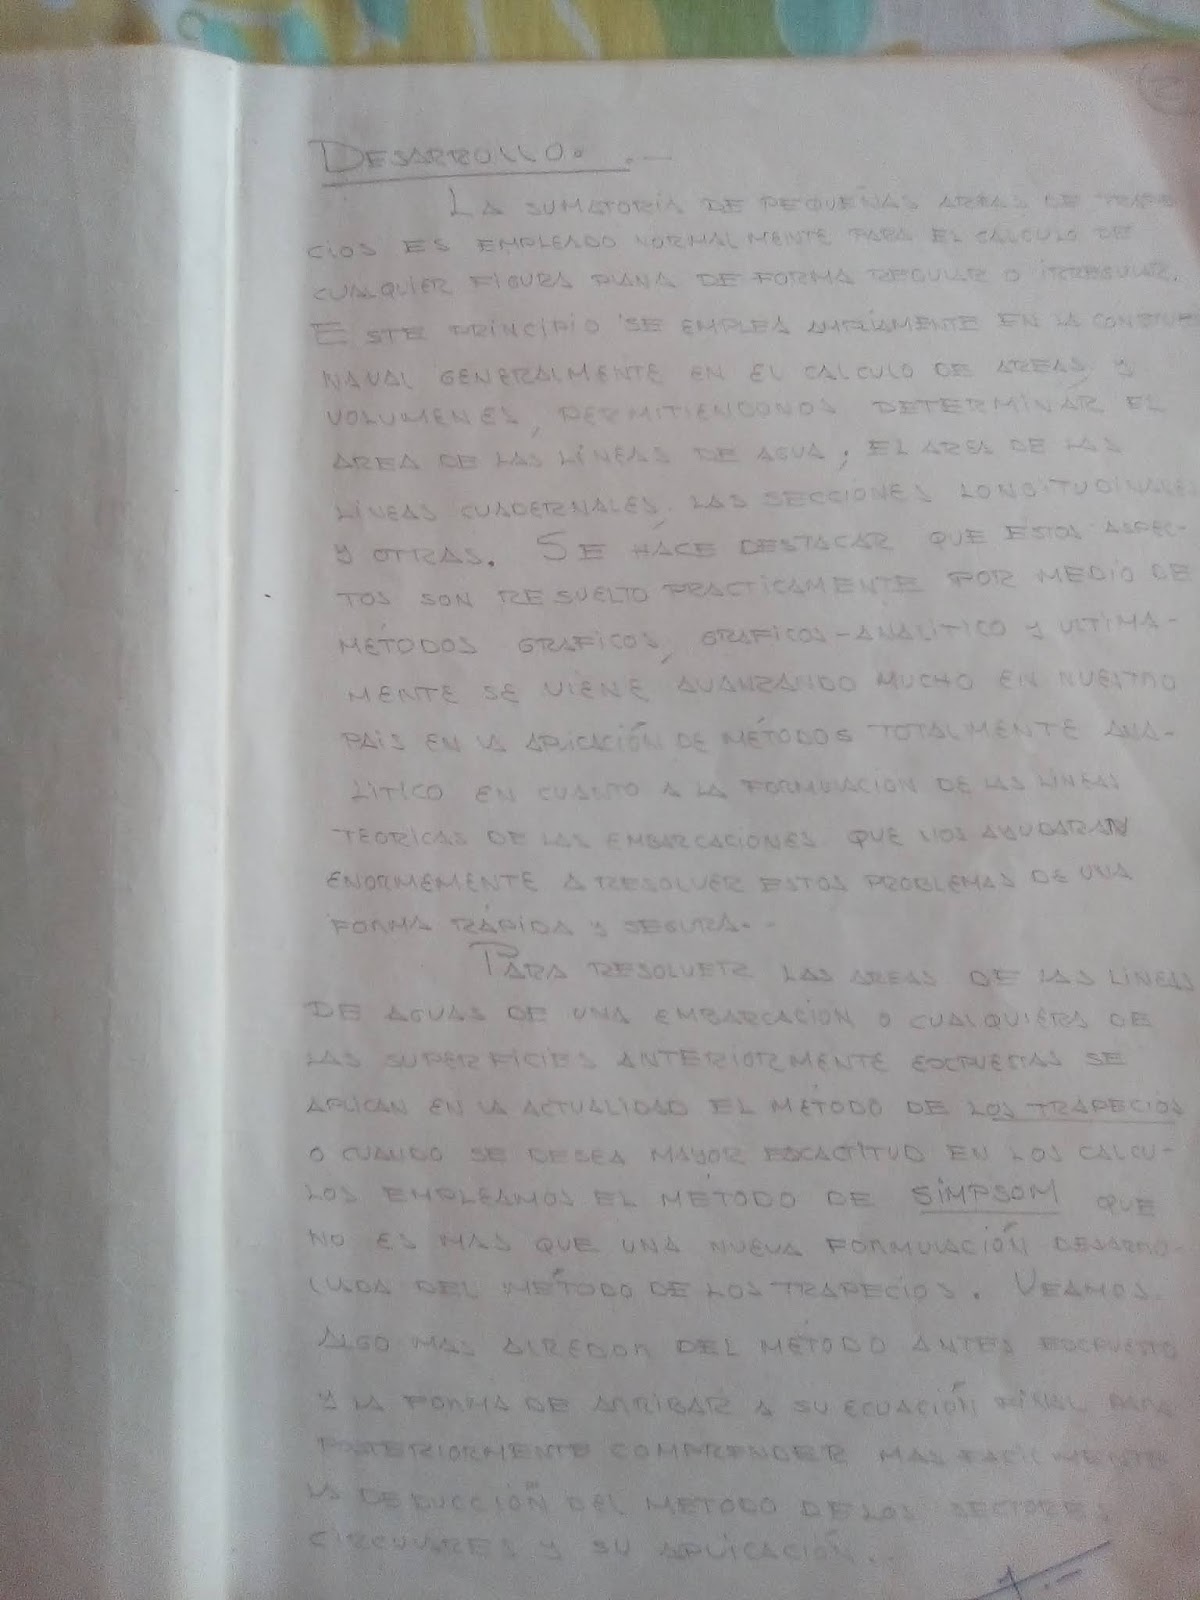 2
DESARROLLO. .—
LA SUMATORIA DE PEQUEÑAS AREAS DE TRAPE
CIOS ES EMPLEADO NORMALMENTE PARA EL CALCULO DE
CUALQUIER FIGURA PLANA DE FORMA REGULAR O IRREGULAR.
ESTE PRINCIPIO SE EMPLEA AMPLIAMENTE EN LA
NAVAL GENERALMENTE EN EL CALCULO DE AREAS Y
VOLUMENES, PERMITIENDONOS DETERMINAR EL
AREA DE LAS LÍNEAS DE AGUA, EL AREA DE LAS
LÍNEAS CUADERNALES, LAS SECCIONES LONGITUDINALES
Y OTRAS. SE HACE DESTACAR QUE ESTOS ASPEC-
TOS SON RESUELTO PRACTICAMENTE POR MEDIO DE
METODOS GRAFICOS, GRAFICOS-ANALITICO Y ULTIMA-
MENTE SE VIENE AVANZANDO MUCHO EN NUESTRO
PAIS EN LA APLICACIÓN DE MÉTODOS TOTALMENTE ANA-
LITICO EN CUANTO A LA FORMULACION DE LAS LÍNEAS
TEORICAS DE LAS EMBARCACIONES QUE NOS AYUDARAN
ENORMEMENTE A RESOLVER ESTOS PROBLEMAS DE UNA
FORMA RÁPIDA Y SEGURA.-
PARA RESOLVER LAS AREAS DE LAS LÍNEAS
DE AGUAS DE UNA EMBARCACION O CUALQUIERA DE
LAS SUPERFICIES ANTERIORMENTE EXPUESTAS SE
APLICAN EN LA ACTUALIDAD EL METODO DE LOS TRAPECIOS
O CUANDO SE DESEA MAYOR EXACTITUD EN LOS CALCU-
LOS EMPLEAMOS EL METODO DE SIMPSOM QUE
NO ES MAS QUE UNA NUEVA FORMULACIÓN DESARRO-
LLADA DEL METODO DE LOS TRAPECIOS. VEAMOS
ALGO MAS ALREDOR DEL METODO ANTES EXPUESTO
Y LA FORMA DE ARRIBAR A SU ECUACIÓN FINAL PARA
POSTERIORMENTE COMPRENDER MAS FACILMENTE
LA DEDUCCIÓN DEL METODO DE LOS SECTORES
CIRCULARES Y SU APLICACIÓN..